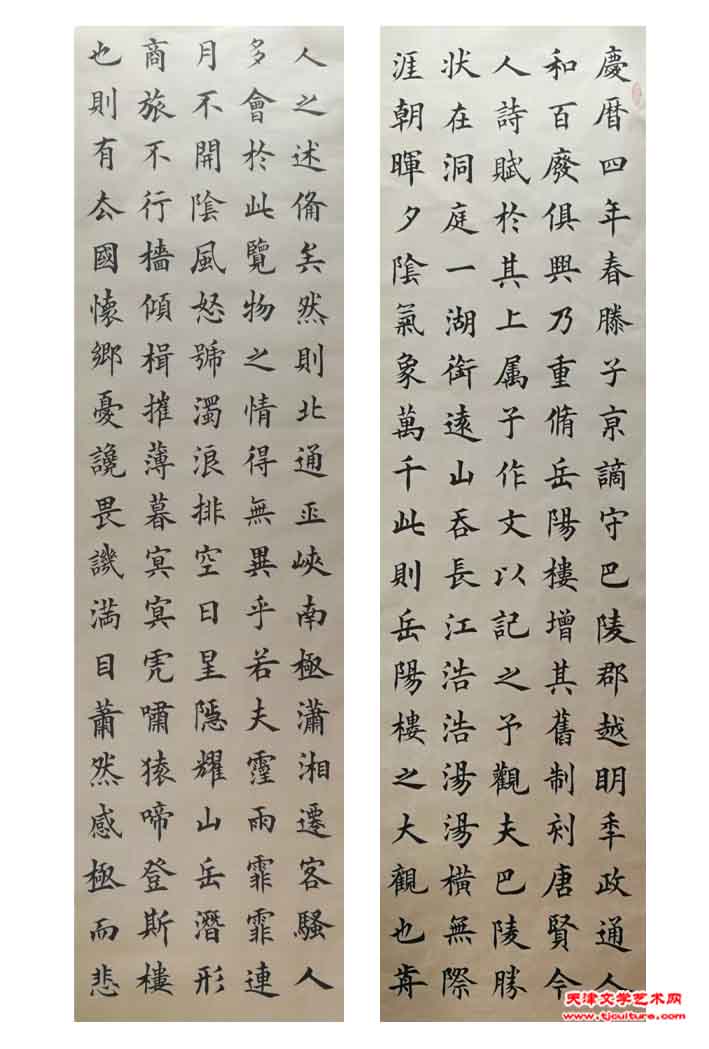 慶曆四年春滕子京謫守巴陵郡越明年政通人
和百廢俱興乃重脩岳陽樓增其舊制刻唐賢今
人詩賦於其上属予作文以記之予觀夫巴陵勝
状在洞庭一湖銜遠山吞長江浩浩湯湯橫無際
涯朝暉夕陰氣象萬千此則岳陽樓之大觀也前
人之述備矣然則北通巫峽南極瀟湘遷客騷人
多會於此覽物之情得無異乎若夫霪雨霏霏連
月不開陰風怒號濁浪排空日星隱耀山岳潛形
商旅不行檣傾楫摧薄暮冥冥虎嘯猿啼登斯樓
也則有去國懷鄉憂讒畏譏滿目蕭然感極而悲
天津文学艺术网
www.tjculture.com